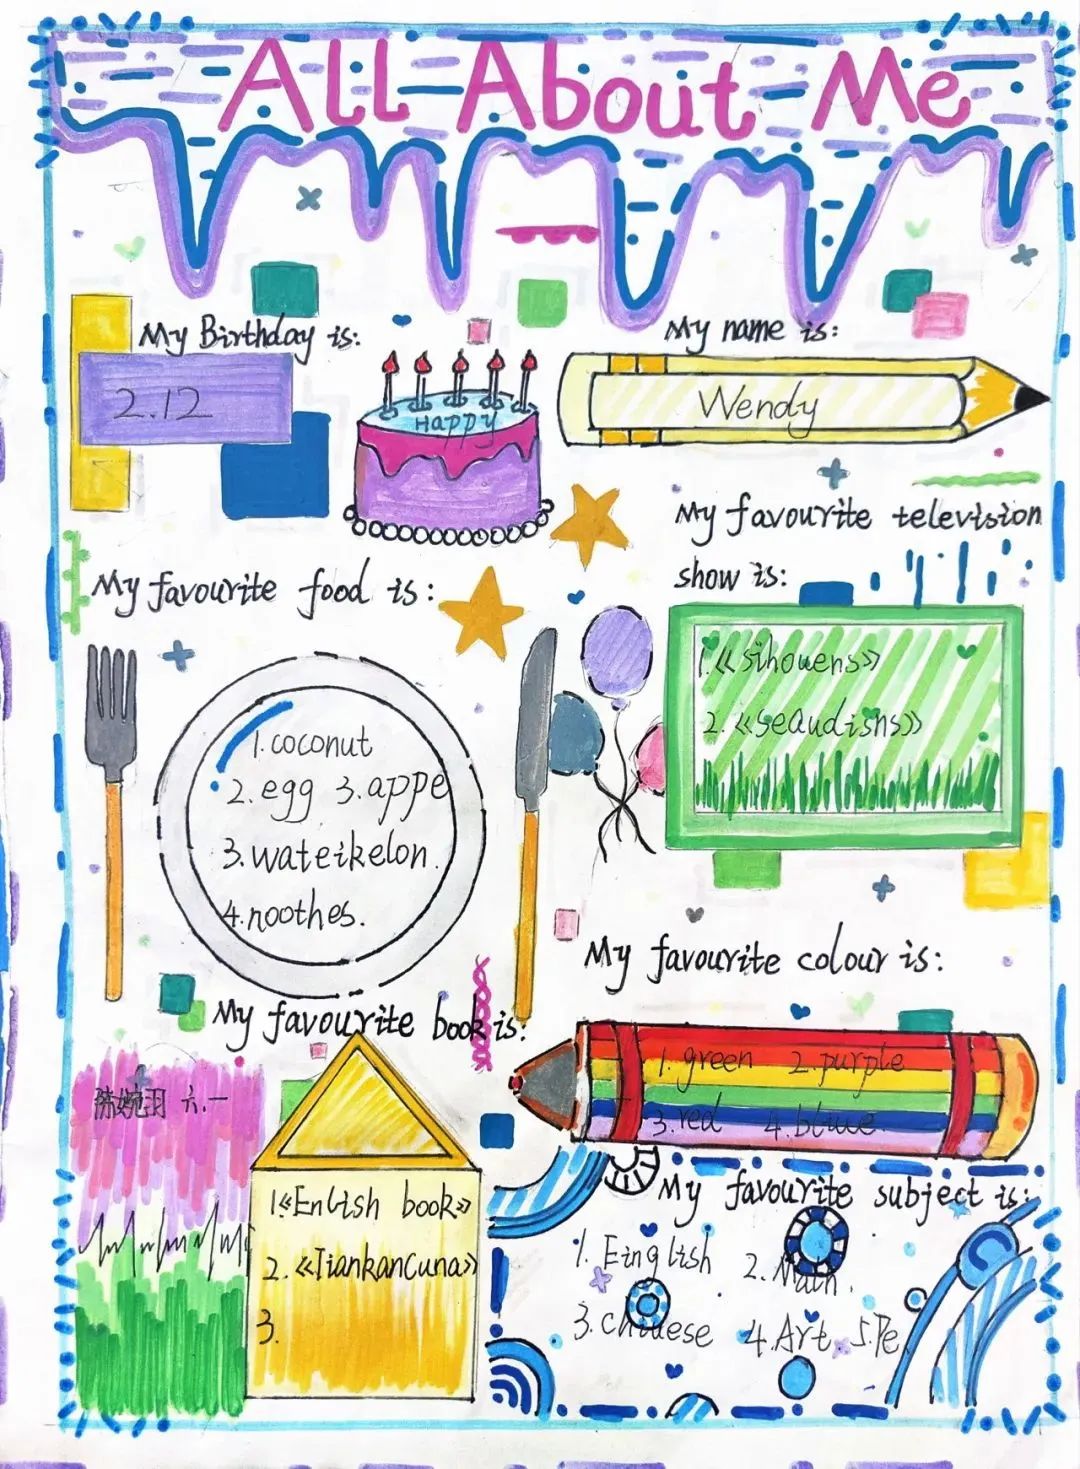 All About Me
My Birthday is:
2.12
Happy
My name is:
Wendy
My favourite television
show is:
1.《sihouens》
2.《seaudisns》
My favourite food is:
1.coconut
2.egg 3.appe
3.wateikelon.
4.noothes.
My favourite colour is:
1.green 2.purple
3.red 4.blwue.
My favourite book is:
陈婉羽 六.一
1《Enlish book》
2.《TiankanCuna》
3.
My favourite subject is:
1. Einglish 2.Math.
3.chinese 4.Art. 5.Pe